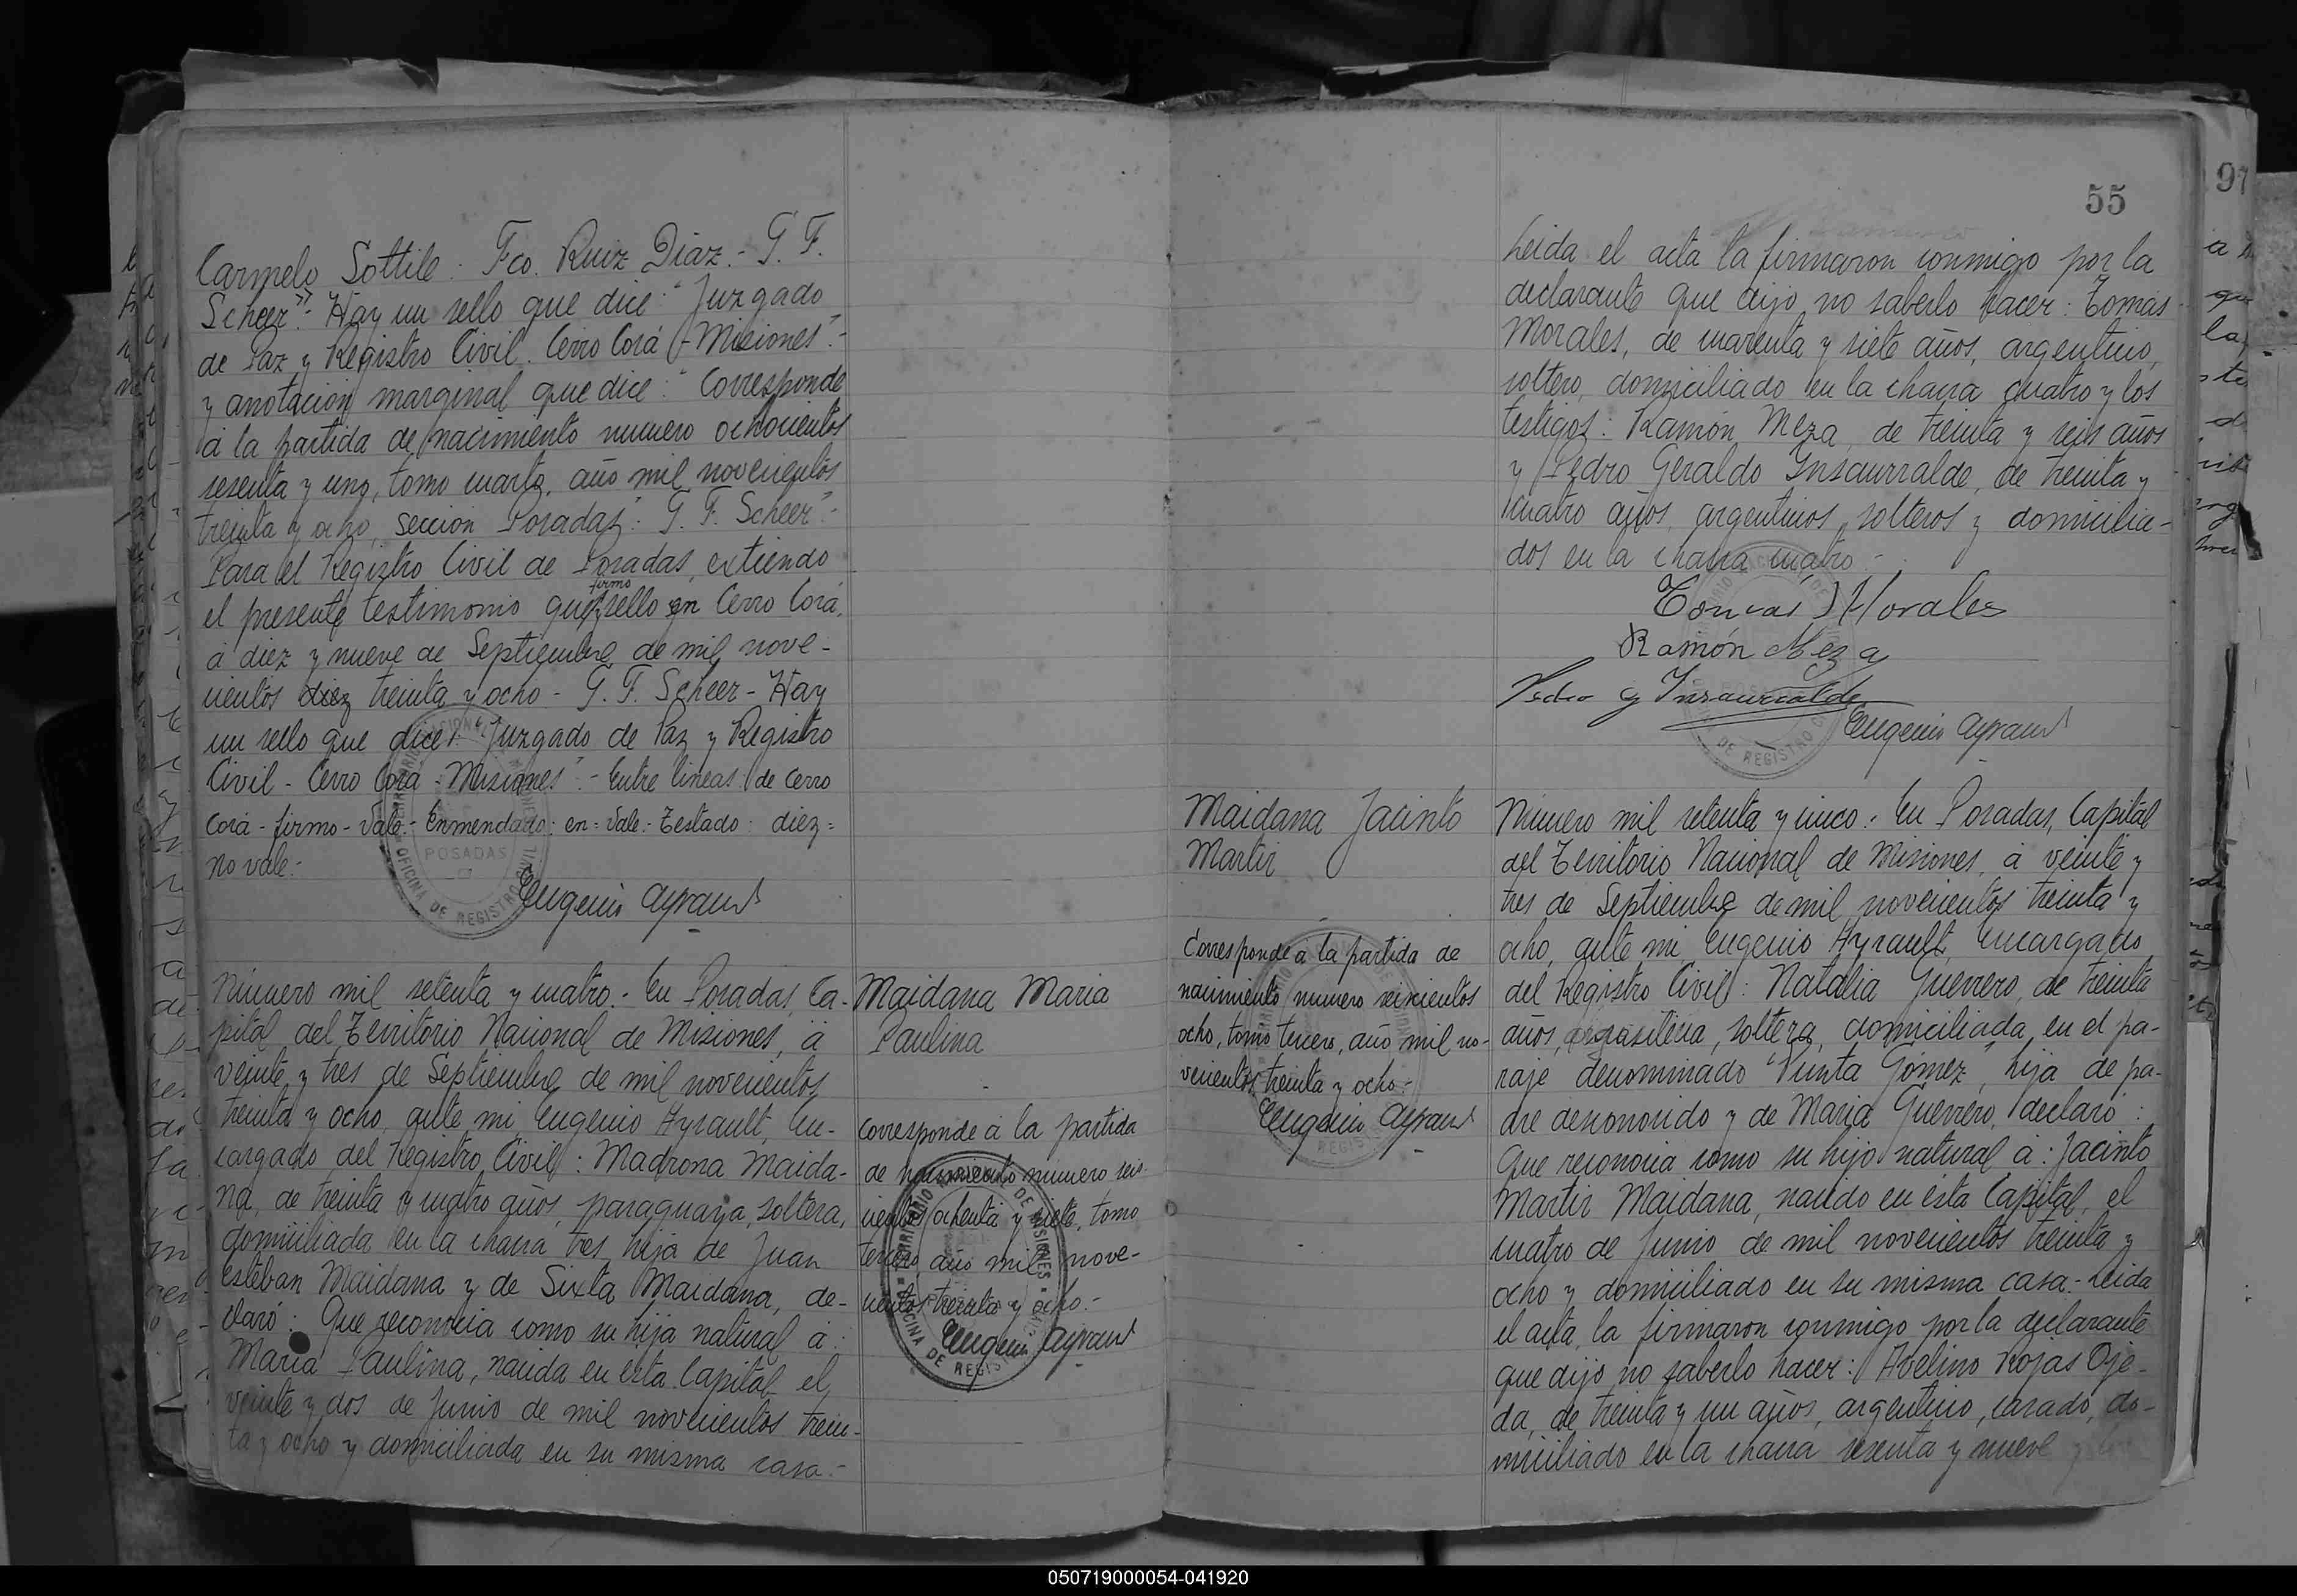 Carmelo Sottile: Fco. Ruiz Diaz.- G. F.
Scheer".- Hay un sello que dice: "Juzgado
de Paz y Registro Civil. Cerro Corá - Misiones".-
y anotación marginal que dice: "Corresponde
á la partida de nacimiento numero ochocientos
sesenta y uno, tomo cuarto, año mil novecientos
treinta y ocho, sección Posadas": G. F. Scheer".-
Para el Registro Civil de Posadas, extiendo
firmo
el presente testimonio que y sello en Cerro Corá,
á diez y nueve de Septiembre de mil nove-
cientos diez treinta y ocho - G. F. Scheer - Hay
un sello que dice: "Juzgado de Paz y Registro
Civil - Cerro Corá - Misiones".- Entre lineas: de Cerro
Corá - firmo - Vale.- Enmendado: en = Vale.- Testado: diez =
no vale:-
POSADAS
OFICINA DE REGISTRO CIVIL
Eugenio Ayrault
Número mil setenta y cuatro.- En Posadas, Ca-
pital del Territorio Nacional de Misiones, á
veinte y tres de Septiembre de mil novecientos
treinta y ocho, ante mi, Eugenio Ayrault, En-
cargado del Registro Civil: Madrona Maida-
na, de treinta y cuatro años, paraguaya, soltera,
domiciliada en la chacra tres, hija de Juan
Esteban Maidana y de Sixta Maidana, de-
claró: Que reconocia como su hija natural á:
Maria Paulina, nacida en esta Capital, el
veinte y dos de Junio de mil novecientos trein-
ta y ocho y domiciliada en su misma casa.-
Maidana Maria
Paulina
Corresponde á la partida
de nacimiento numero seis-
cientos ochenta y siete, tomo
tercero, año mil nove-
cientos treinta y ocho.-
Eugenio Ayrault
55
Leida el acta la firmaron conmigo por la
declarante que dijo no saberlo hacer: Tomás
Morales, de cuarenta y siete años, argentino,
soltero, domiciliado en la chacra cuatro y los
testigos: Ramón Meza, de treinta y seis años
y Pedro Geraldo Insaurralde, de treinta y
cuatro años, argentinos, solteros y domicilia-
dos en la chacra cuatro.-
Tomas Morales
Ramón Meza
Pedro G Insaurralde
Eugenio Ayrault
Maidana Jacinto
Martir
Corresponde á la partida de
nacimiento numero seiscientos
ocho, tomo tercero, año mil no-
vecientos treinta y ocho.-
Eugenio Ayrault
Número mil setenta y cinco.- En Posadas, Capital
del Territorio Nacional de Misiones, á veinte y
tres de Septiembre de mil novecientos treinta y
ocho, ante mi, Eugenio Ayrault, Encargado
del Registro Civil: Natalia Guerrero, de treinta
años, brasilera, soltera, domiciliada en el pa-
raje denominado "Punta Gómez", hija de pa-
dre desconocido y de Maria Guerrero, declaró:
Que reconocia como su hijo natural á: Jacinto
Martir Maidana, nacido en ésta Capital, el
cuatro de Junio de mil novecientos treinta y
ocho y domiciliado en su misma casa.- Leida
el acta, la firmaron conmigo por la declarante
que dijo no saberlo hacer: Avelino Rojas Oje-
da, de treinta y un años, argentino, casado, do-
miciliado en la chacra sesenta y nueve y los
97
050719000054-041920